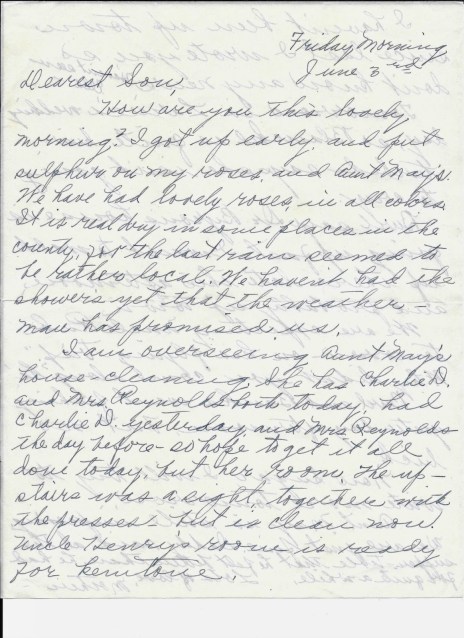 Friday Morning
June 3rd
Dearest Son,
How are you this lovely
morning? I got up early and put
sulphur on my roses, and Aunt May's.
We have had lovely roses, in all colors.
It is real dry in some places in the
county, for the last rain seemed to
be rather local. We haven't had the
showers yet that the weather-
man has promised us.
I am overseeing Aunt May's
house-cleaning. She has Charlie D.
and Mrs Reynolds both today, had
Charlie D. yesterday, and Mrs Reynolds
the day before - so hope to get it all
done today, but her room. The up-
stairs was a sight, together with
the presses! but is clean now!
Uncle Henry's room is ready
for kemtone.